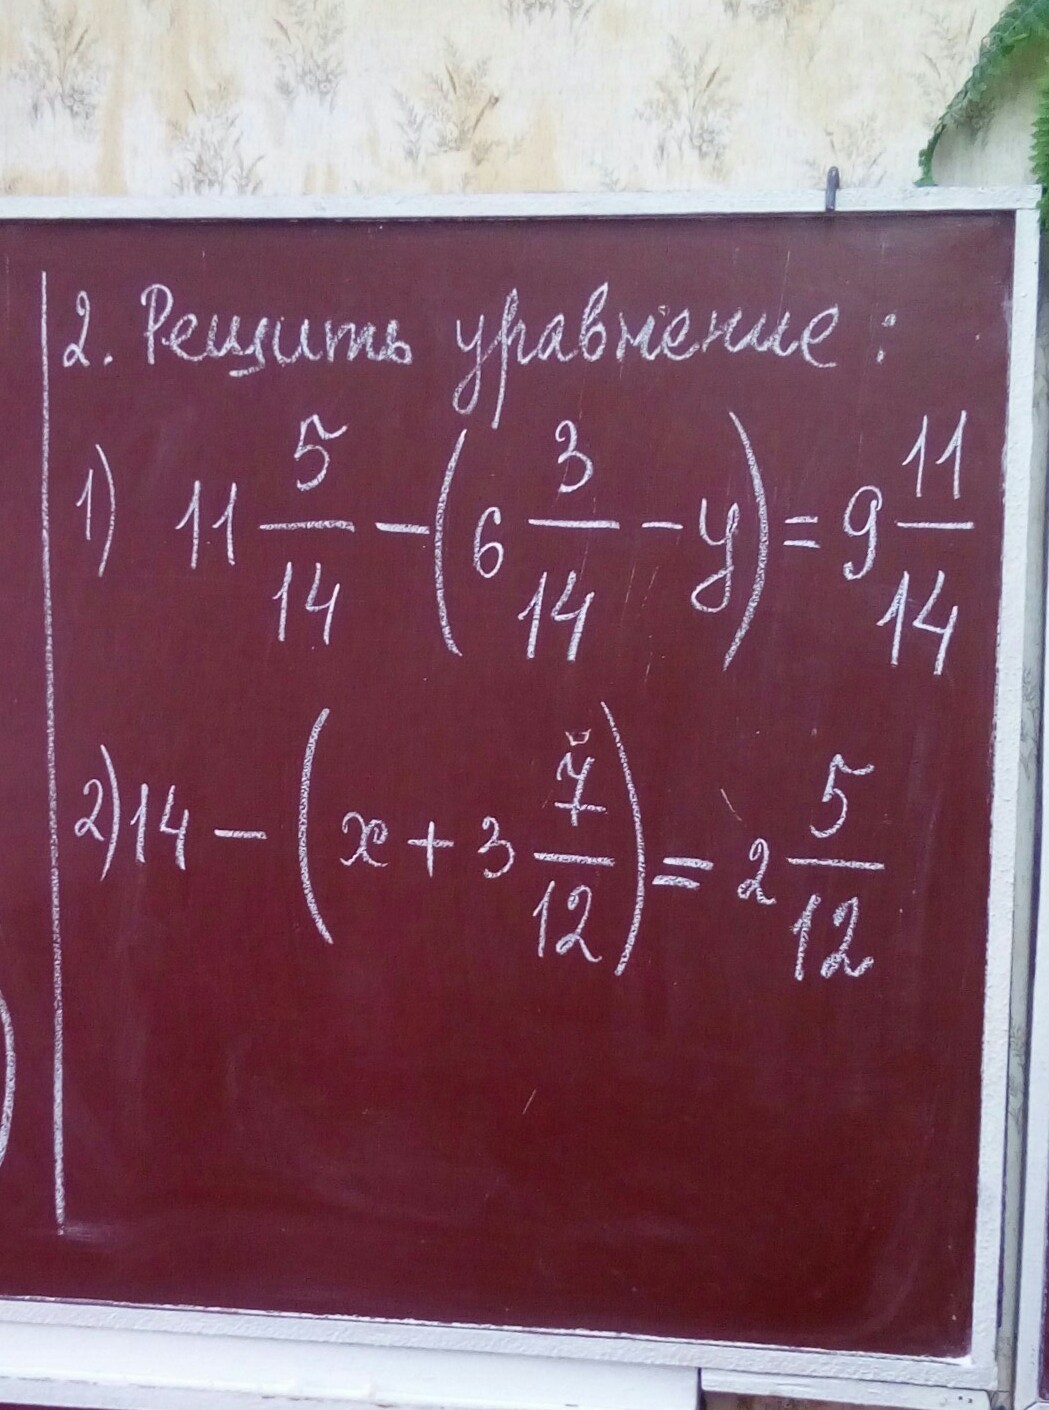 2. Решить уравнение:
1) 11 5/14 - (6 3/14 - y) = 9 11/14
2) 14 - (x + 3 7/12) = 2 5/12